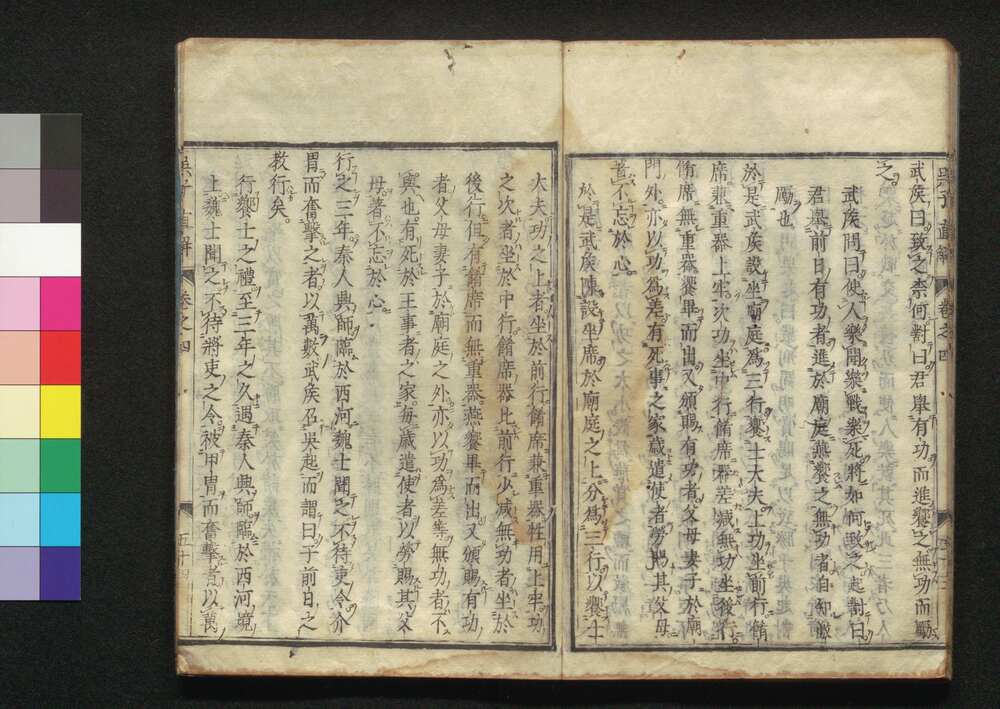 武侯曰致之柰何對曰君舉有功而進饗之無功而勵
之
武侯問曰使人樂聞樂戰樂死將如何致之起對曰
君墓前日有功者進於廟庭燕饗之無功者自知激
勵也
於是武侯設坐廟庭爲三行饗士大夫上功坐前行餚
席兼重器上牢次功坐中行餚席器差減無功坐後行
餚席無重器饗畢而出又頒賜有功者父母妻子於廟
門外亦以功爲差有死事之家歲遣使者勞賜其父母
著不忘於心
於是武侯陳設坐席於廟庭之上分爲三行以饗士
大夫功之上者坐於前行餚席兼重器牲用上牢功
之次者坐於中行餚席器比前行少減無功者坐於
後行但有餚席而無重器燕饗畢而出又頒賜有功
者父母妻子於廟庭之外亦以功爲差等無功者不
與也有死於王事者之家每歲遣使者以勞賜其父
母著不忘於心
行之三年秦人興師臨於西河魏士聞之不待吏令介
冑而奮擊之者以萬數武侯召吳起而謂曰子前日之
教行矣
行饗士之禮至三年之久遇秦人興師臨於西河境
上魏士聞之不待將吏之令被甲冑而奮擊者以萬
直解 卷之四 五十四